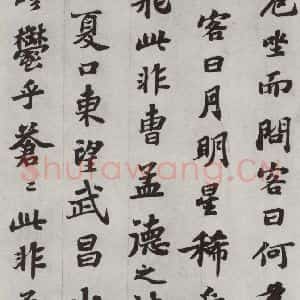 危坐而問客曰何為
客曰月明星稀
飛此非曹孟德之
夏口東望武昌山
鬱乎蒼〻此非
shufawang.CN